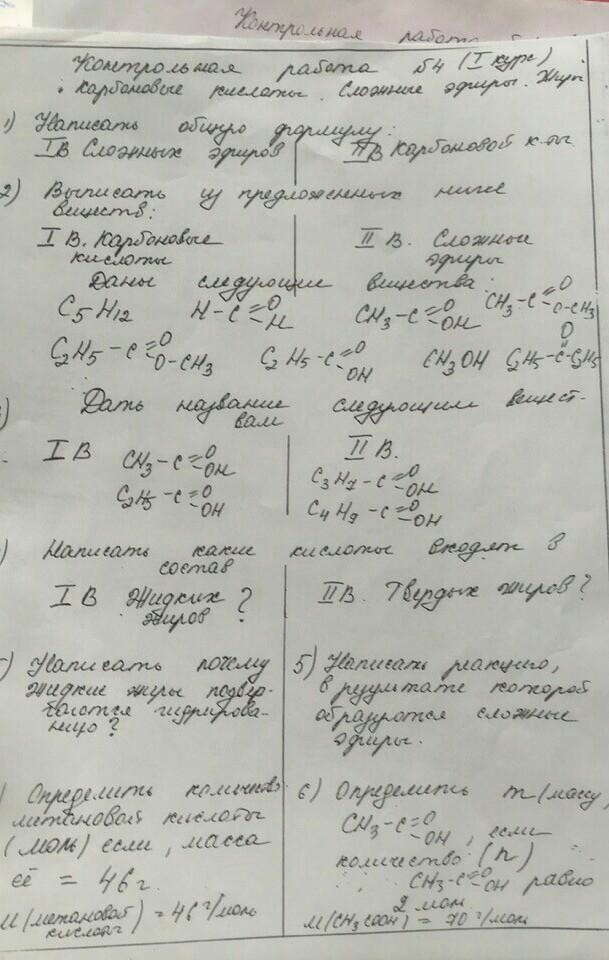 Контрольная работа
Контрольная работа №4 (I курс)
Карбоновые кислоты. Сложные эфиры. Жиры
1) Написать общую формулу:
I В Сложных эфиров II В Карбоновой к-ты
2) Выписать из предложенных ниже
веществ:
I В. Карбоновые кислоты II В. Сложные эфиры
Даны следующие вещества:
C5H12 H-C=O-H CH3-C=O-OH CH3-C=O-O-CH3
C2H5-C=O-O-CH3 C2H5-C=O-OH CH3OH C2H5-C=O-C2H5
) Дать название следующим вещест-
вам
I В II В.
CH3-C=O-OH C3H7-C=O-OH
C2H5-C=O-OH C4H9-C=O-OH
) Написать какие кислоты входят в
состав
I В Жидких жиров? II В. Твердых жиров?
) Написать почему
жидкие жиры подвер-
гаются гидрирова-
нию?
5) Написать реакцию,
в результате которой
образуются сложные
эфиры.
) Определить количество
метановой кислоты
(моль) если, масса
её = 46 г.
M (метановой кислоты) = 46 г/моль
6) Определить m (массу)
CH3-C=O-OH, если
количество (n)
CH3-C=O-OH равно
2 моль
M(CH3COOH) = 70 г/моль